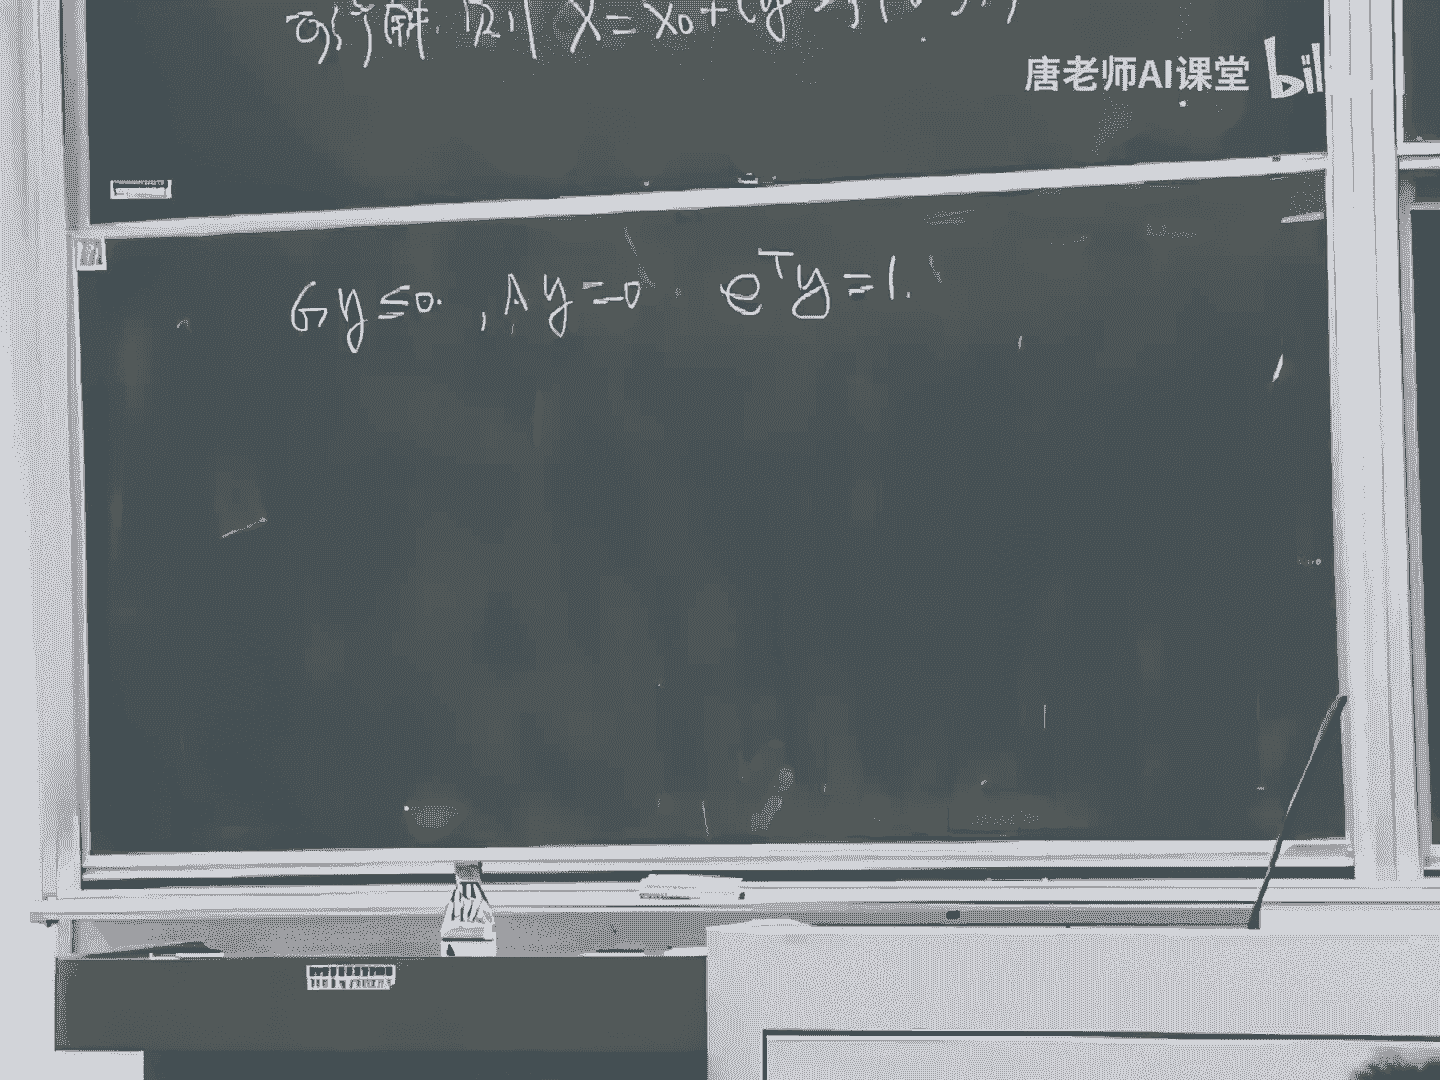 可行解. 则 X = x₀ +
唐老师AI课堂 bil
Gy ≤ 0. , Ay = 0 e^T y = 1.